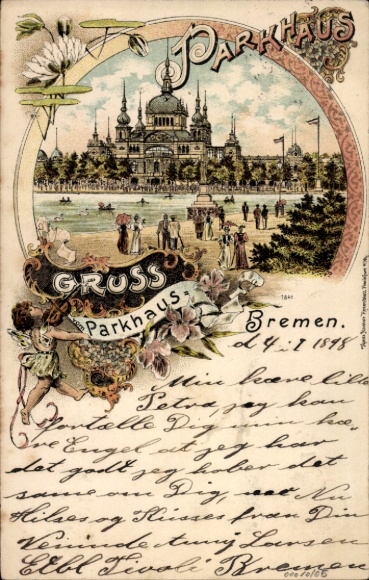 PARKHAUS
GRUSS
aus
Parkhaus,
Bremen.
d 4 · 7 1898
Min kære lille
Petra, jeg kan
fortælle Dig min kæ-
re Engel at jeg har
det godt jeg haber det
same om Dig, Nu
Hilses og Kisses fran Din
Larsen
Etbl Tivoli Bremen